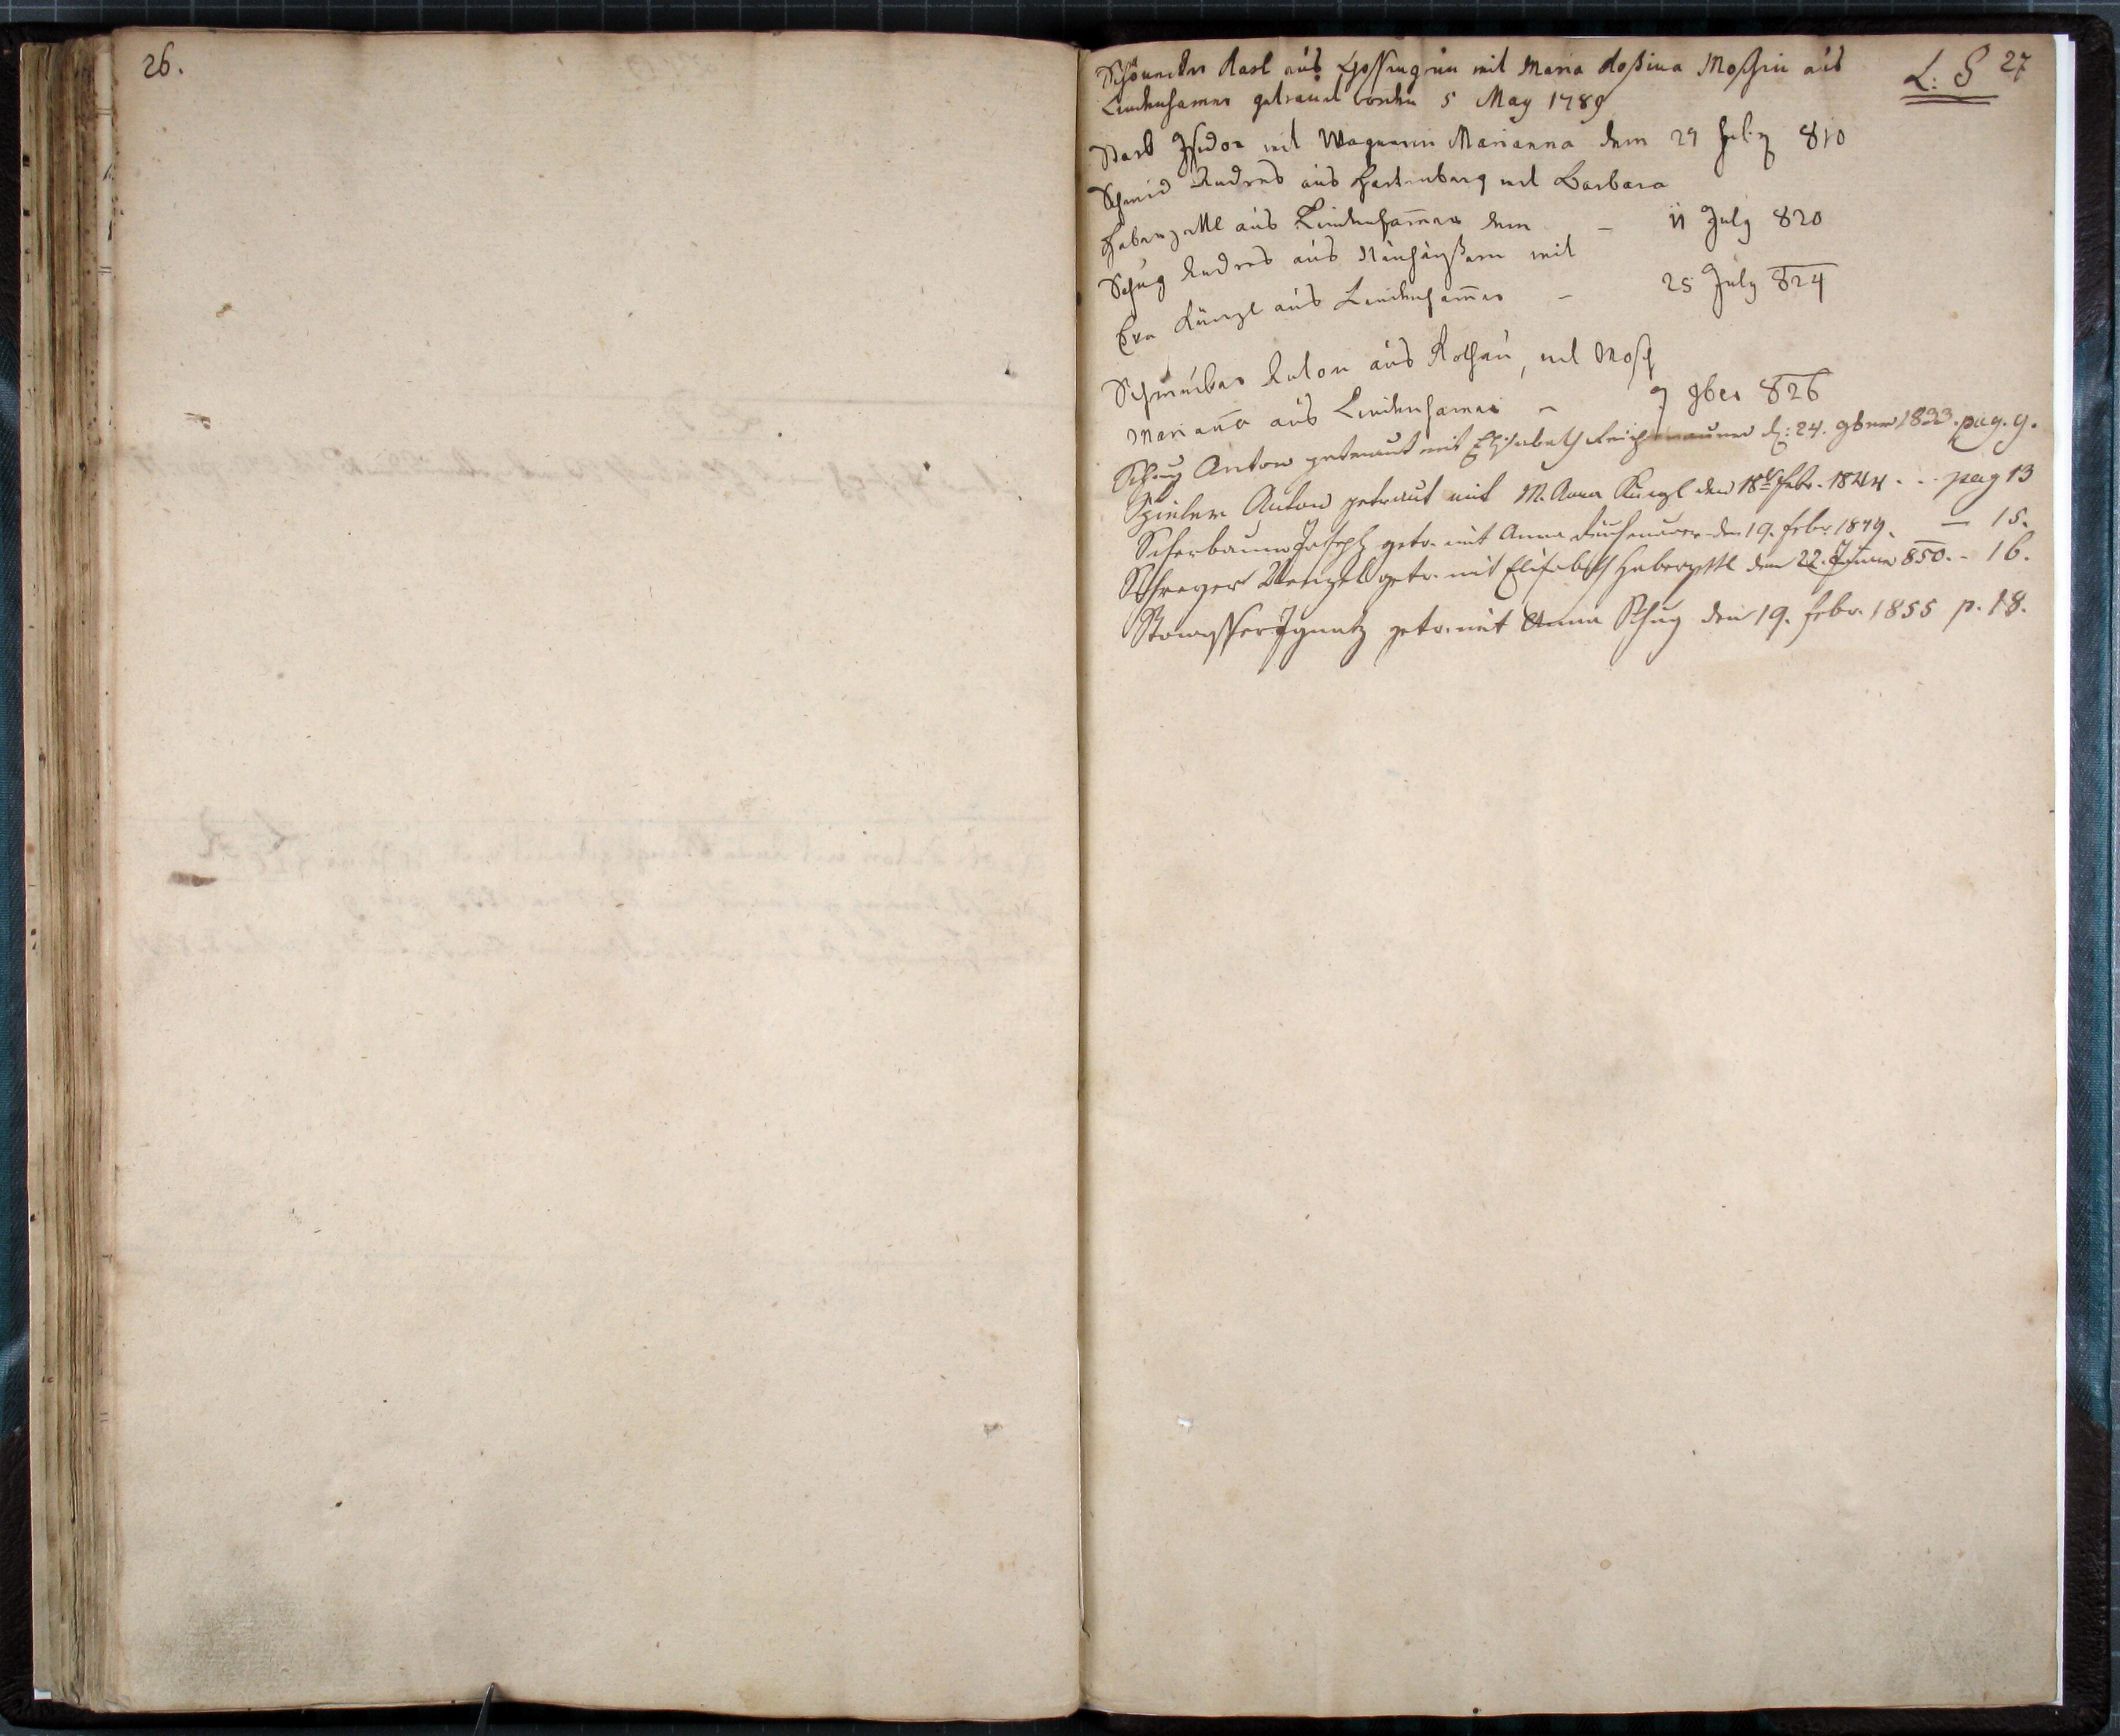 26.
L: S 27
Schönecker Karl aus Gossengrün mit Maria Rosina Moschin aus
Lindenhamer getraut worden 5 May 1789
Starl Isidor mit Wagnerin Marianna dem 29 810
Schmid Andres aus Hartenberg mit Barbara
Haberzettl aus Lindenham̅er dem – 11 July 820
Schug Andres aus mit
Eva Künzl aus Lindenham̅er – 25 July 824
Anton aus Rothau, mit Mosch
Marian̅a aus Lindenhamer – 9 9ber 826
Schug Anton getraut mit Elisabeth Reichenauer d: 24. 9ber 1833. pag. 9.
Spieler Anton getraut mit M. Anna Künzl den 18t Febr. 1844 . . . pag 13
Scherbaum Joseph getr. mit Anna den 19. Febr. 1849. — 15.
Schreyer Wenzel getr. mit Elisabeth Haberzettl den 22. Jänner 850. - 16.
Stowasser Ignatz getr. mit Anna Schug den 19. Febr. 1855 p. 18.